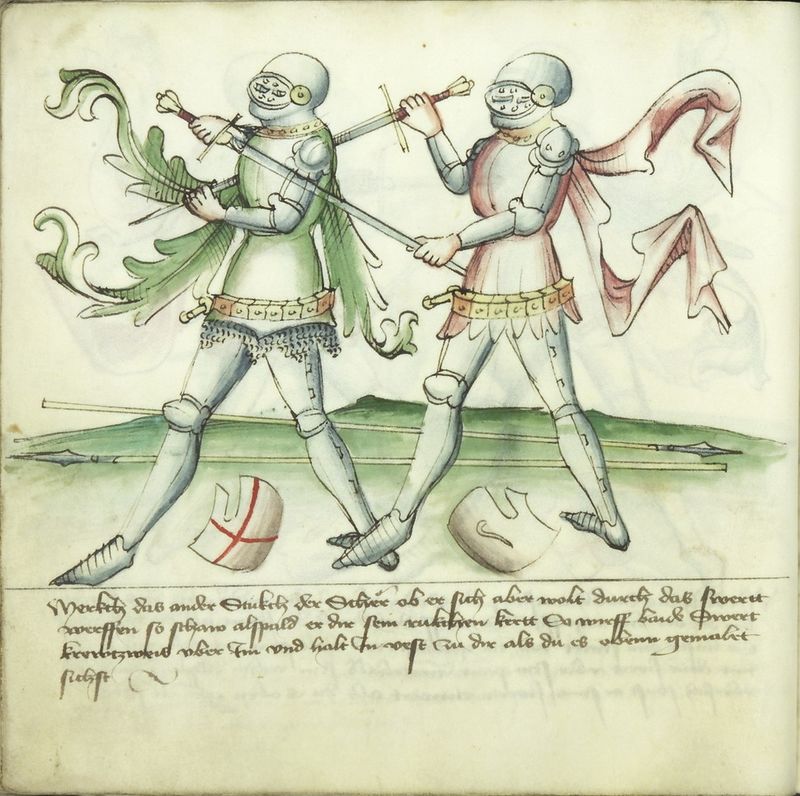 Merkch das ander Stukch der Scher ob er sich aber wolt durch das swert
werffen so schaw alspald er dir sein rukchen kertt So wurff baide Swert
krewtzweis vber Im vnd halt In vest zu dir als du es obenn gemalet
sichst